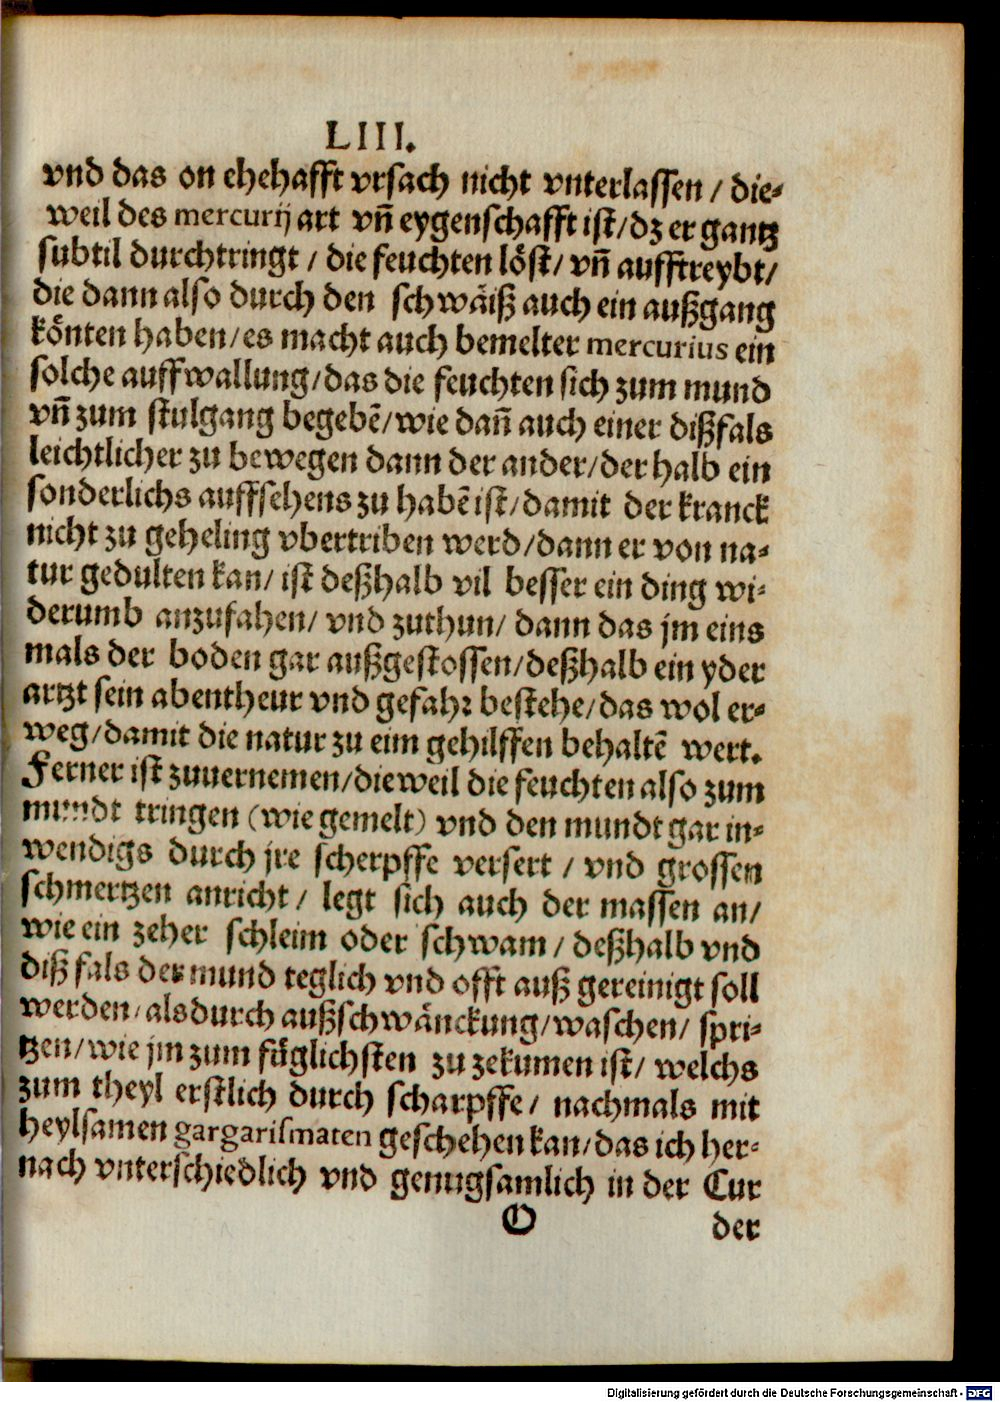 LIII.
vnd das on ehehafft vrsach nicht vnterlassen / die-
weil des mercurij art vñ eygenschafft ist/dz er gantz
subtil durchtringt / die feuchten löst/ vñ aufftreybt/
die dann also durch den schwäiß auch ein außgang
könten haben/es macht auch bemelter mercurius ein
solche auffwallung/das die feuchten sich zum mund
vñ zum stulgang begebẽ/wie dañ auch einer dißfals
leichtlicher zu bewegen dann der ander/der halb ein
sonderlichs auffsehens zu habẽ ist/damit der kranck
nicht zu geheling vbertriben werd/dann er von na-
tur gedulten kan/ ist deßhalb vil besser ein ding wi-
derumb anzufahen/ vnd zuthun/ dann das jm eins
mals der boden gar außgestossen/deßhalb ein yder
artzt sein abentheur vnd gefahr bestehe/das wol er-
weg/damit die natur zu eim gehilffen behaltẽ wert.
Ferner ist zuuernemen/dieweil die feuchten also zum
mundt tringen (wie gemelt) vnd den mundt gar in-
wendigs durch jre scherpffe versert / vnd grossen
schmertzen anricht/ legt sich auch der massen an/
wie ein zeher schleim oder schwam / deßhalb vnd
diß fals der mund teglich vnd offt auß gereinigt soll
werden/als durch außschwänckung/waschen/ spri-
tzen/wie jm zum füglichsten zu zekumen ist/ welchs
zum theyl erstlich durch scharpffe/ nachmals mit
heylsamen gargarismaten geschehen kan/das ich her-
nach vnterschiedlich vnd genugsamlich in der Cur
O der
Digitalisierung gefördert durch die Deutsche Forschungsgemeinschaft - DFG